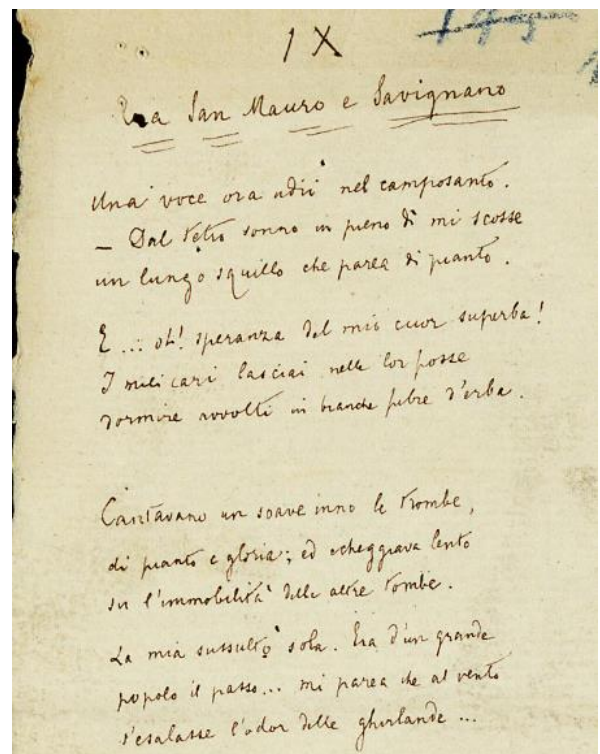 IX
Tra San Mauro e Savignano
Una voce ora udii nel camposanto.
– Dal tetro sonno in pieno dì mi scosse
un lungo squillo che parea di pianto.
E... oh! speranza del mio cuor superba!
I miei cari lasciai nelle lor fosse
dormire avvolti in bianche fibre d'erba.
Cantavano un soave inno le trombe,
di pianto e gloria; ed echeggiava lento
su l'immobilità delle altre tombe.
La mia sussultò sola. Era d'un grande
popolo il passo... mi parea che al vento
s'esalasse l'odor delle ghirlande...